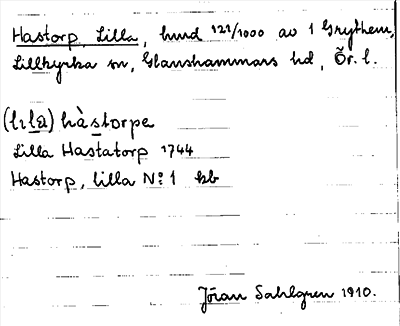 Hastorp, Lilla, hmd 121/1000 av 1 Grythem,
Lillkyrka sn, Glanshammars hd, Ör. l.
(lıla) hàstorpe
Lilla Hastatorp 1744
Hastorp, lilla No 1 kb
Jöran Sahlgren 1910.